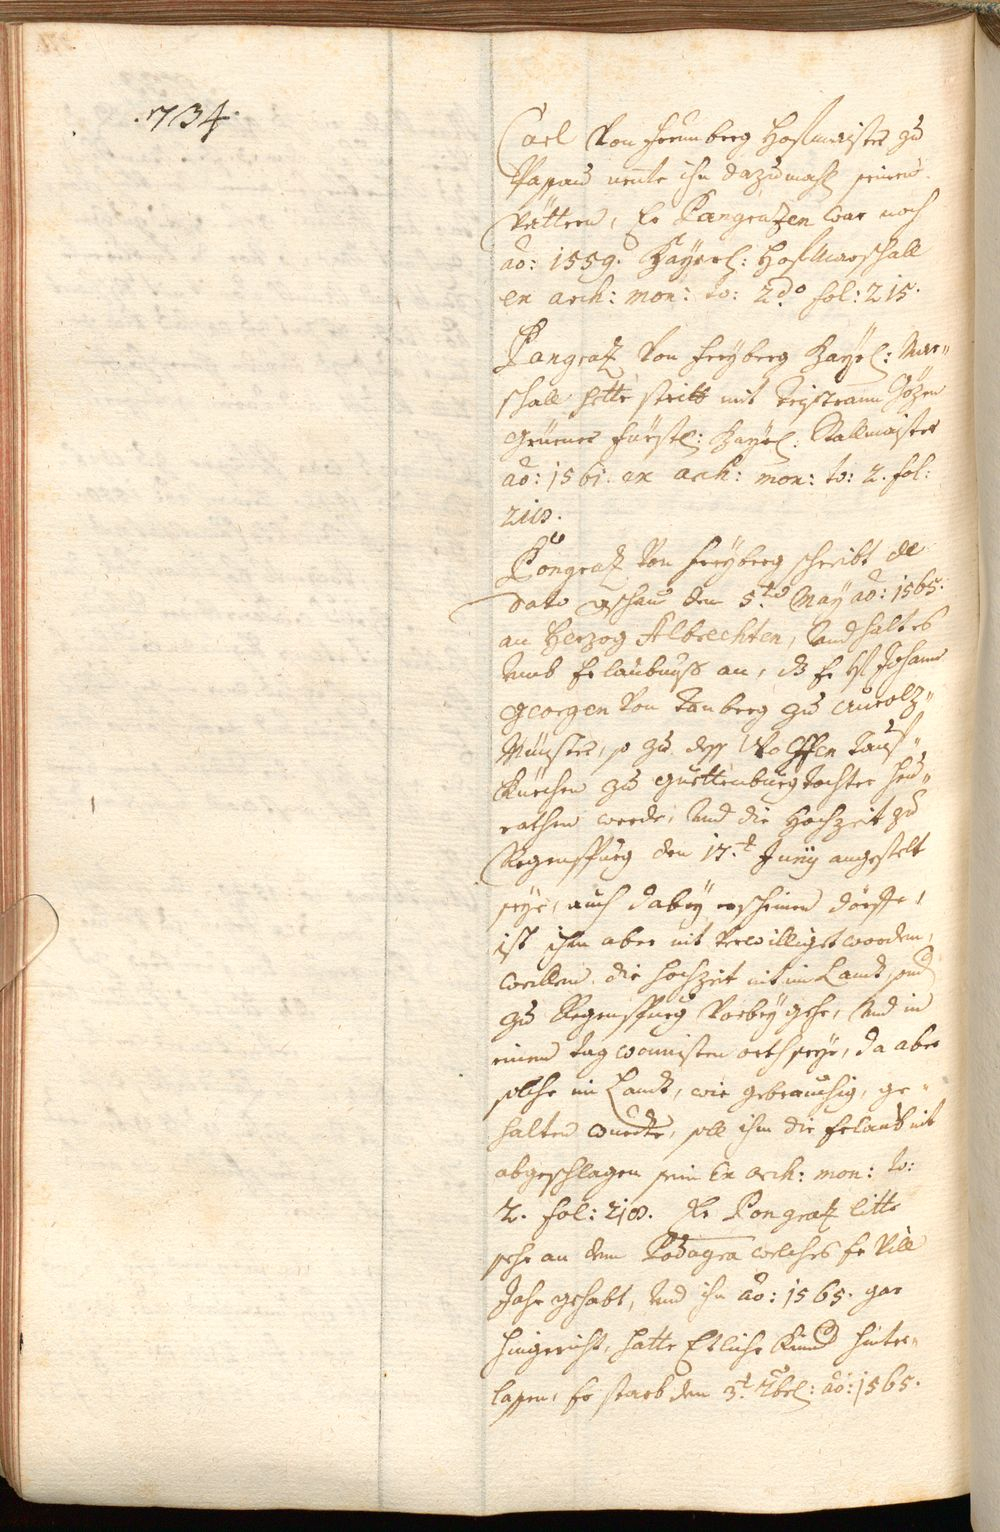 .734.
Carl von Freunberg Hofmaister zu
Passau nente ihn dazumahl seinen
Vättern, Er Pangrazen war noch
ao: 1559. Bayerl: Hofmarschall
ex arch: mon: to: 2do fol: 215.
Pangraz von Freyberg Bayrl: Mar=
schall hette stritt mit Tristram
Fürstl: Bayrl: Stallmaister
ao: 1561. ex arch: mon: to: 2. fol:
218.
Pongraz von Freyberg schreibt de
dato Aschau den 5.ten May ao: 1565.
an Herzog Albrechten, und halt es
umb Erlaubnuss an, das Er bey Johann
Georgen von Tanberg zu Aurolz=
Münster, so zu dess Wolffen Tauf=
kürchen zu Guettenburg Tochter heu=
rathen werde, und die Hochzeit zu
Regenspurg den 17.t Juny angestelt
seye, auch dabey erscheinen dörffe,
ist ihm aber nit verwilliget worden,
weillen die Hochzeit nit im Landt sond
zu Regenspurg vorbey gehe, und in
einem orth seye, da aber
solche im Landt, wie gebräuchig, ge=
halten wurdte, soll ihm die Erlaubnit
abgeschlagen sein Ex arch: mon: to:
2. fol: 218. Er Pongraz litte
sehr an dem Podagra welches Er vill
Jahr gehabt, und ihn ao: 1565. gar
hingericht, hatte Etliche Kind hinter=
lassen, Er starb den 3.t ao: 1565.